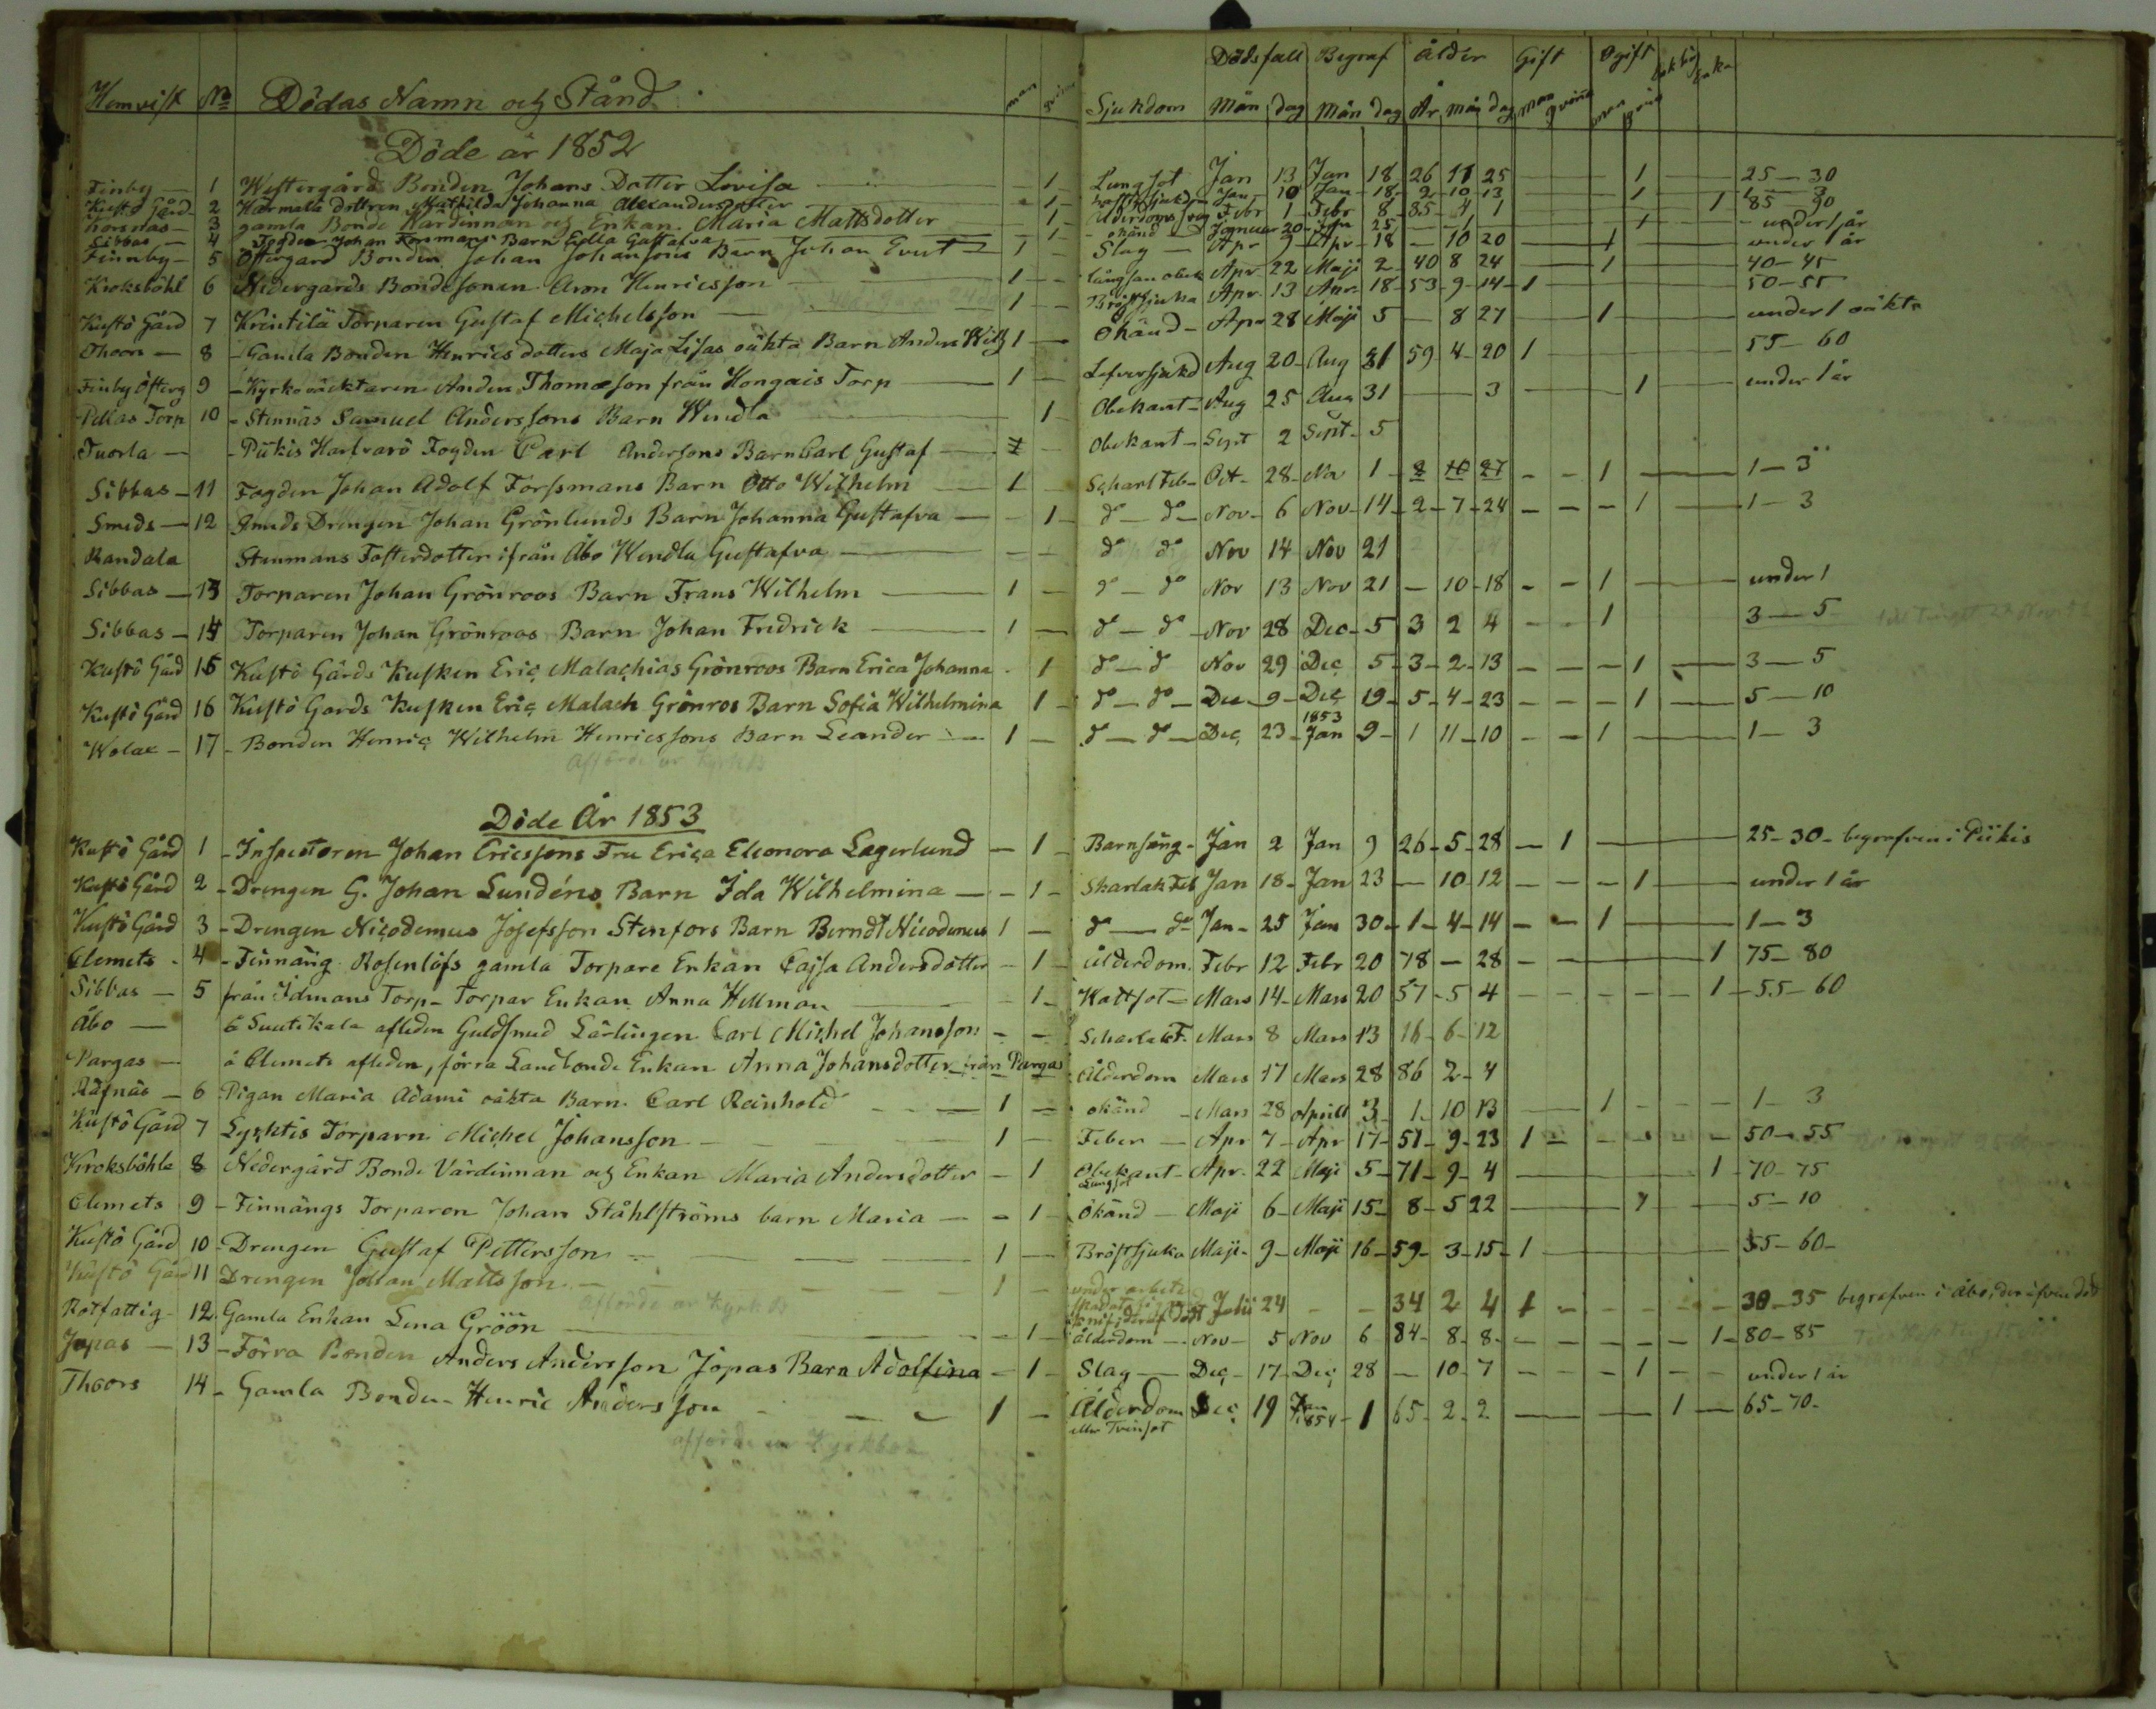 Hemvist No Dödas Namn och Stånd man Sjukdom Dödsfall Mån dag Begraf Mån dag ålder År mån dag Gift man qvinna Ogift man Enka
Döde år 1852
Finby — 1 Westergård Bonden Johans Dotter Lovisa — 1 Lungsot Jan 13 Jan 18 26 11 25 1 25 — 30
Kustö Gård 2 Mathilda Johanna Alexandersdotter 1 Jan 10 Jan 18 2 10 13 1 1 — 3
3 gamla Bonde Wärdinnan och Enkan Maria Mattsdotter 1 Febr 1 Febr 8 85 4 1 1 85 90
Sibbas — 4 Fogden Johan Barn Edla Gustafva 1 okänd Januar 20 Jan 25 1 1 under 1 år
Finnby — 5 Östergård Bonden Johan Johansons Barn Johan Evert 1 Slag — Apr 9 Apr 18 — 10 20 1 under 1 år
Kroksböhl 6 Nedergårds Bondesonen Aron Henricsson 1 Apr 22 Maji 2 40 8 24 1 40 — 45
Kustö Gård 7 Krintilä Torparen Gustaf Michelsson 1 Bröstsjuka Apr. 13 Apr. 18 53 — 9 — 14 1 50 — 55
Thoors — 8 Gamla Bonden Henrics dotters Maja Lisas oäkta Barn Anders Wilh 1 Okänd — Apr 28 Maji 5 — 8 27 1 under 1 oäkta
Finby Österg 9 Kyrkoväcktaren Anders Thomæson från Hongais Torp 1 Lefversjukd Aug 20 Aug 31 59 4 20 1 55 — 60
Pellas Torp 10 Stennäs Samuel Anderssons Barn Wendla 1 Obekant — Aug 25 Aug 31 — 3 1 under 1 år
Tuorla — Piikis Harfvarö Fogden Carl Andersons Barn Carl Gustaf — Obekant — Sept 2 Sept 5
Sibbas — 11 Fogden Johan Adolf Forssmans Barn Otto Wilhelm 1 Scharl Feb — Oct — 28 Nov 1 2 10 27 1 1 — 3
Smeds — 12 Smeds Drengen Johan Grönlunds Barn Johanna Gustafva — 1 do — do — Nov — 6 Nov — 14 — 2 — 7 — 24 1 1 — 3
Randala Stenmans Fosterdotter ifrån Åbo Wendla Gustafva — do do Nov 14 Nov 21
Sibbas — 13 Torparen Johan Grönroos Barn Frans Wilhelm — 1 do — do Nov 13 Nov 21 — 10 — 18 1 under 1
Sibbas — 14 Torparen Johan Grönroos Barn Johan Fredrick — 1 do — do — Nov 28 Dec — 5 3 2 4 1 3 — 5
Kustö Gård 15 Kustö Gårds Kusken Eric Malachias Grönroos Barn Erica Johanna 1 do — do Nov 29 Dec 5 — 3 — 2 — 13 1 3 — 5
Kustö Gård 16 Kustö Gårds Kusken Eric Malach Grönros Barn Sofia Wilhelmina 1 do — do — Dec — 9 — Dec 19 — 5 — 4 — 23 1 5 — 10
Wolax — 17 Bonden Henric Wilhelm Henricssons Barn Leander — 1 do — do — Dec 23 — 1853 Jan 9 — 1 11 — 10 1 1 — 3
Afförde ur Kyrk B
Döde År 1853
Kustö Gård 1 Inspectoren Johan Ericssons Fru Erica Eleonora Lagerlund — 1 Barnsäng — Jan 2 Jan 9 26 — 5 — 28 — 1 25 — 30 — begrafven i Piikis
Kustö Gård 2 Drengen G. Johan Lundéns Barn Ida Wilhelmina — 1 Skarlak Feb Jan 18 — Jan 23 — 10 — 12 1 under 1 år
Kustö Gård 3 Drengen Nicodemus Josefsson Stenfors Barn Berndt Nicodemus 1 do — do Jan — 25 Jan 30 — 1 — 4 — 14 1 1 — 3
Clemets — 4 Finnäng Rosenlöfs gamla Torpare Enkan Cajsa Andersdotter — 1 Ålderdom. Febr 12 Febr 20 78 — 28 1 75 — 80
Sibbas — 5 från Idmans Torp — Torpar Enkan Anna Hellman 1 Mars 14 — Mars 20 57 — 5 4 1 — 55 — 60
Åbo — å afleden Guldsmed Lärlingen Carl Michel Johansson — Scharlak F. Mars 8 Mars 13 16 — 6 — 12
Pargas — å Clemets afleden, förra Landbonde Enkan Anna Johansdotter från Pargas Ålderdom Mars 17 Mars 28 86 2 — 4
Räfnäs — 6 Pigan Maria Adami oäkta Barn Carl Reinhold — 1 okänd — Mars 28 Aprill 3 1 — 10 13 1 1 — 3
Kustö Gård 7 Lyhtis Torparn Michel Johansson — 1 Feber — Apr 7 — Apr 17 — 51 — 9 — 23 1 50 — 55
Kroksböhle 8 Nedergård Bonde Värdinnan och Enkan Maria Andersdotter — 1 Obekant — Lungsot Apr. 22 Maji 5 — 71 — 9 — 4 1 70 — 75
Clemets 9 Finnängs Torparen Johan Ståhlströms barn Maria — 1 Okänd — Maji 6 — Maji 15 — 8 — 5 22 1 5 — 10
Kustö Gård 10 Drengen Gustaf Pettersson — 1 Bröstsjuka Maji — 9 — Maji 16 — 59 — 3 — 15 — 1 55 — 60
Kustö Gård 11 Drengen Johan Mattsson — 1 under arbete Julii 24 — 34 2 4 1 30 — 35 begrafven i Åbo, der äfven död
Afförde ur Kyrk B
Rotfattig — 12 Gamla Enkan Lena Gröön — 1 ålderdom — Nov — 5 Nov 6 84 — 8 — 8 1 — 80 — 85
Jopas — 13 Förra Bonden Anders Andersson Jopas Barn Adolfina — 1 Slag — Dec — 17 Dec 28 — 10 — 7 1 under 1 år
Thoors 14 Gamla Bonden Henric Andersson — 1 Ålderdom eller Tvinsot Dec 19 Jan 1854 — 1 65 — 2 — 2 1 65 — 70
afförde ur Kyrkbok